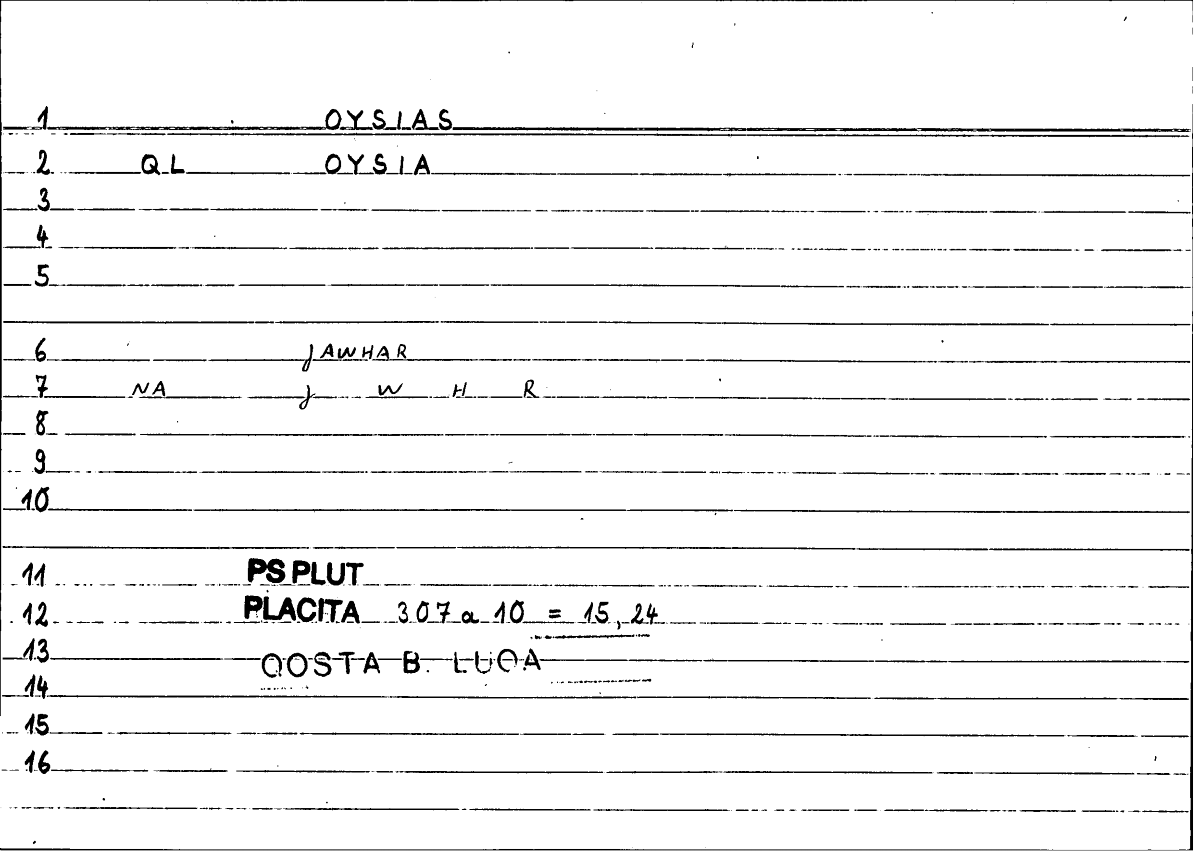 1 OYSIAS
2 QL OYSIA
3
4
5
6 JAWHAR
7 NA J W H R
8
9
10
11 PS PLUT
12 PLACITA 307 a 10 = 15,24
13 QOSTA B. LUQA
14
15
16